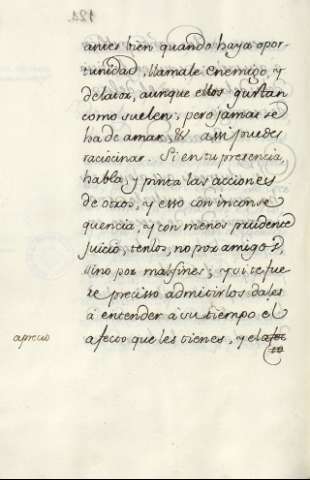 121.
antes bien quando haya opor-
tunidad, llamale enemigo, y
delator, aunque ellos gustan
como suelen; pero jamas se
ha de amar, assi puedes
raciocinar. Si en tu presencia,
habla, y pinta las acciones
de otros, y esto con inconse
quencia, y con menos prudente
juicio, tenlos, no por amigos,
sino por malsines; y si te fue
re preciso admitirlos dales
á entender á su tiempo el
aprecio afecto que les tienes, y el afec
to